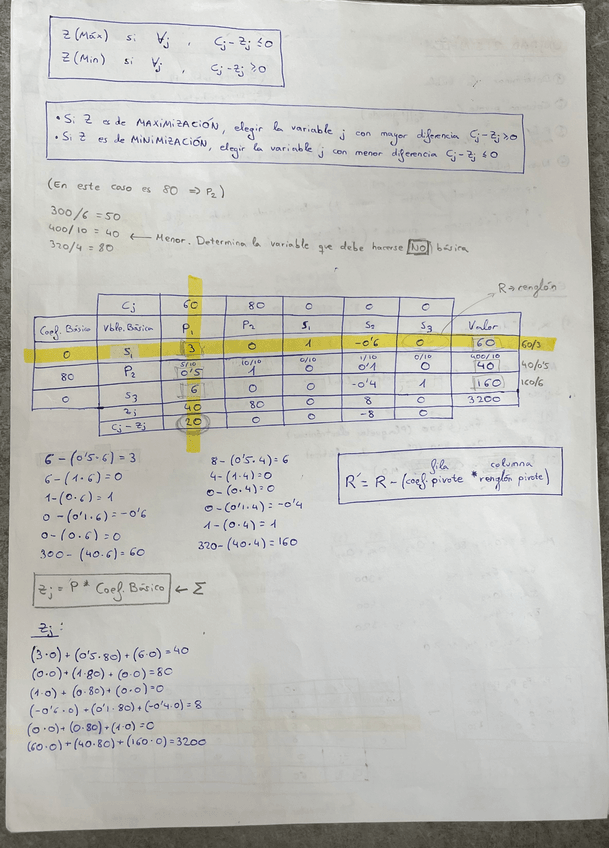 Z (Máx) si ∀j , Cj - Zj ≤ 0
Z (Min) si ∀j , Cj - Zj ≥ 0
• Si Z es de MAXIMIZACIÓN, elegir la variable j con mayor diferencia Cj - Zj ≥ 0
• Si Z es de MINIMIZACIÓN, elegir la variable j con menor diferencia Cj - Zj ≤ 0
(En este caso es 80 ⇒ P2)
300/6 = 50
400/10 = 40 ← Menor. Determina la variable que debe hacerse NO básica
320/4 = 80
R → renglón
Cj 60 80 0 0 0
Coef. Básico Vble. Básica P1 P2 S1 S2 S3 Valor
0 S1 3 0 1 -0'6 0 60 60/3
5/10 10/10 0/10 1/10 0/10 400/10
80 P2 0'5 1 0 0'1 0 40 40/0'5
0 S3 6 0 0 -0'4 1 160 160/6
Zj 40 80 0 8 0 3200
Cj - Zj 20 0 0 -8 0
6 - (0'5·6) = 3
6 - (1·6) = 0
1 - (0·6) = 1
0 - (0'1·6) = -0'6
0 - (0·6) = 0
300 - (40·6) = 60
8 - (0'5·4) = 6
4 - (1·4) = 0
0 - (0·4) = 0
0 - (0'1·4) = -0'4
1 - (0·4) = 1
320 - (40·4) = 160
fila columna
R' = R - (coef. pivote * renglón pivote)
Zj = P * Coef. Básico ← Σ
Zj :
(3·0) + (0'5·80) + (6·0) = 40
(0·0) + (1·80) + (0·0) = 80
(1·0) + (0·80) + (0·0) = 0
(-0'6·0) + (0'1·80) + (-0'4·0) = 8
(0·0) + (0·80) + (1·0) = 0
(60·0) + (40·80) + (160·0) = 3200